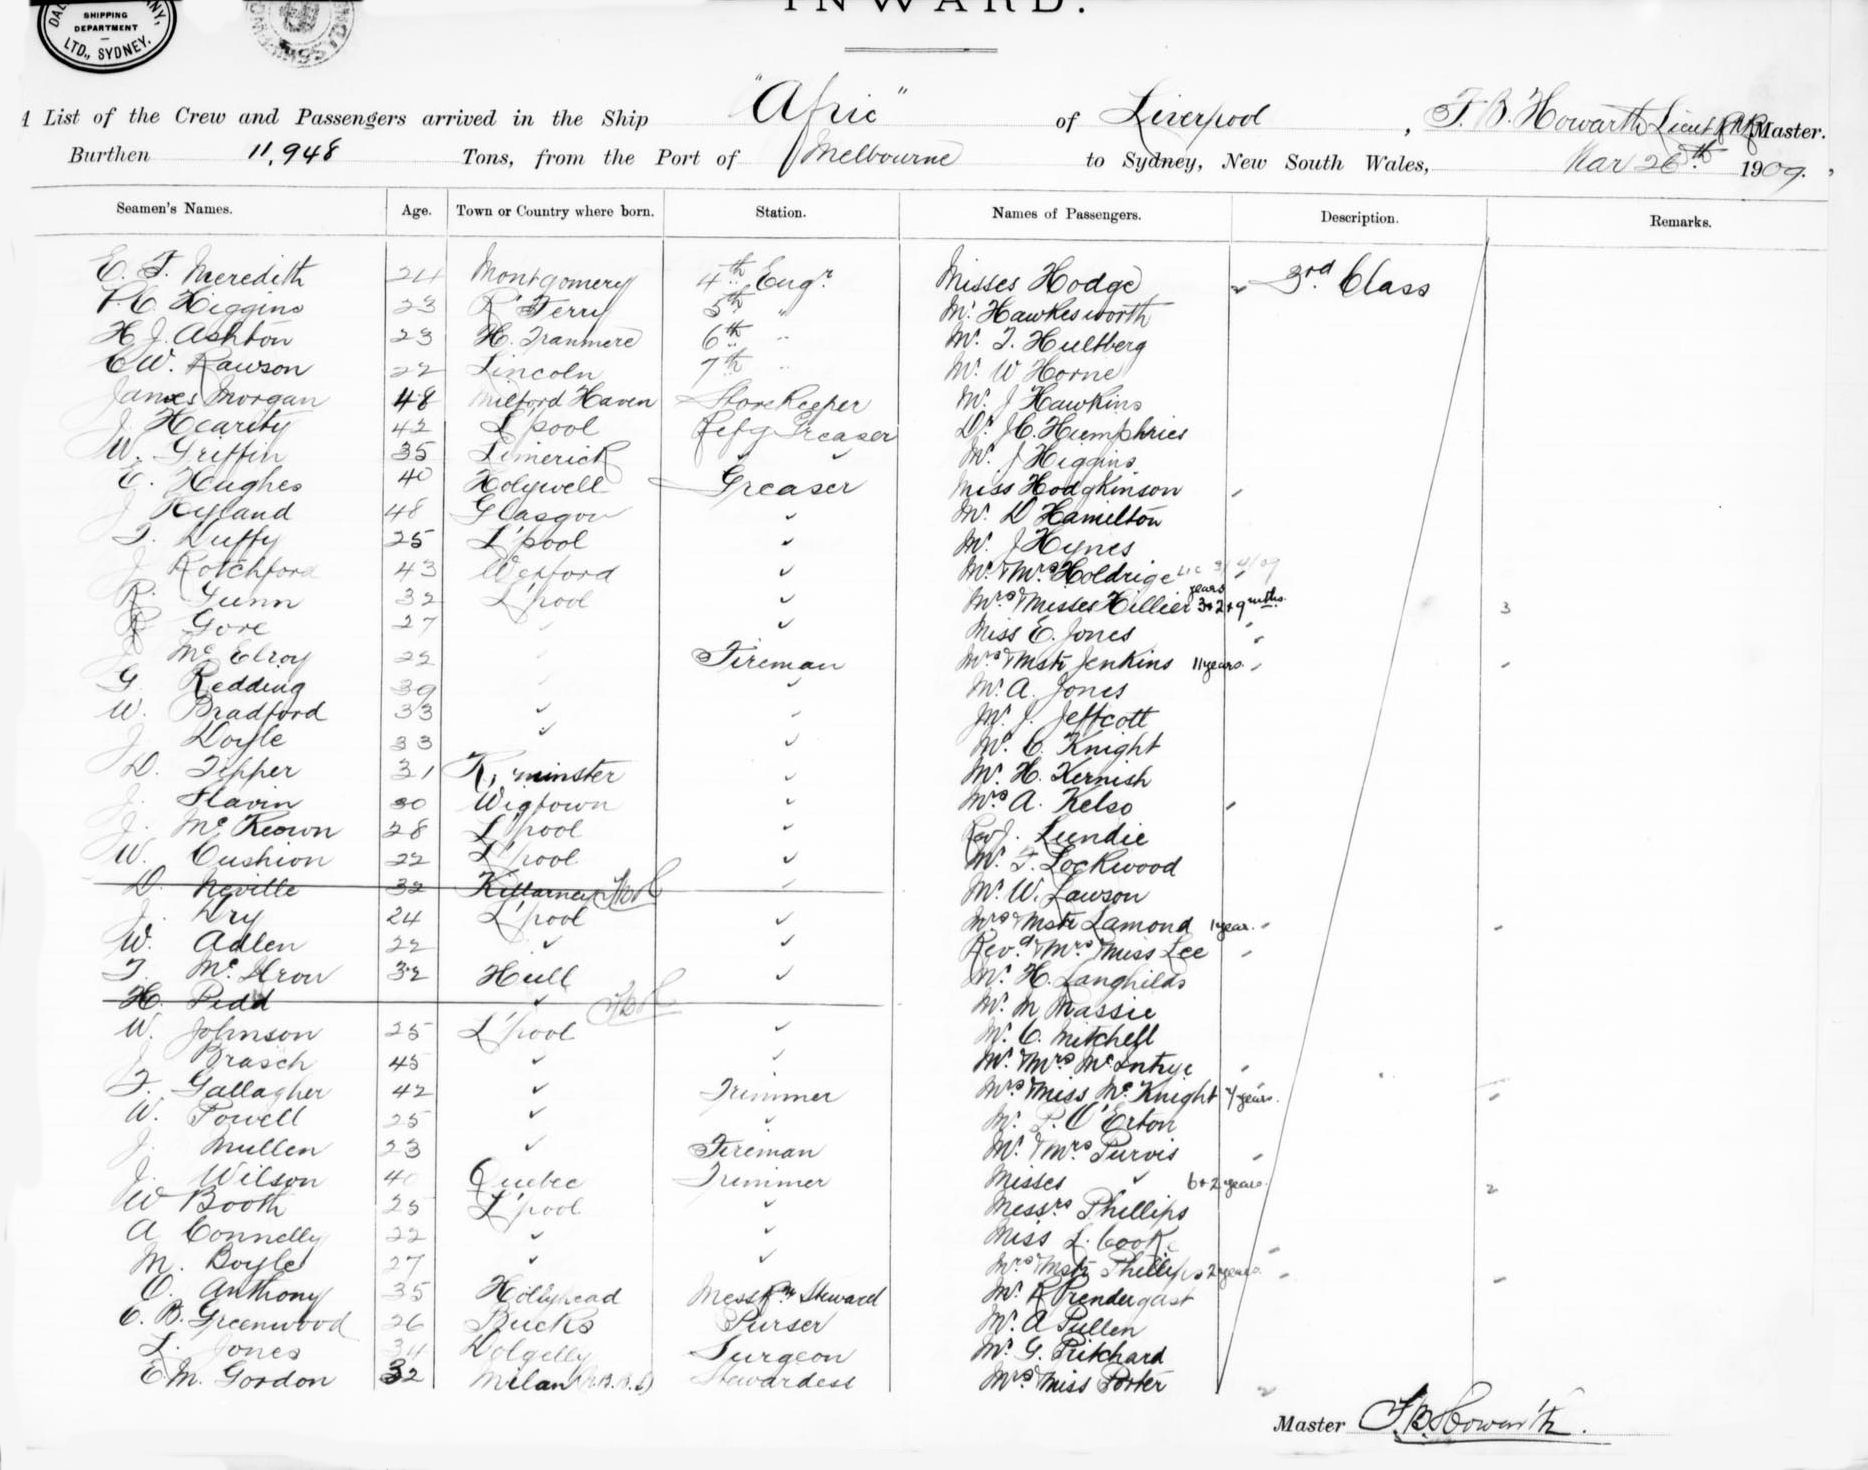 SHIPPING
DEPARTMENT
LTD., SYDNEY.
INWARD.
List of the Crew and Passengers arrived in the Ship "Afric" of Liverpool, T. B. Howarth Lieut RNR Master.
Burthen 11,948 Tons, from the Port of Melbourne to Sydney, New South Wales, Mar 26th 1909.
Seamen's Names. Age. Town or Country where born. Station. Names of Passengers. Description. Remarks.
E. T. Meredith 24 Montgomery 4th Engr Misses Hodge 2 3rd Class
Higgins 23 R' Ferry 5th " Mr Hawkesworth
H. J. Ashton 23 H. Tranmere 6th " Mr T. Hultberg
C W. Rawson 22 Lincoln 7th " Mr W Horne
James Morgan 48 Milford Haven Storekeeper Mr J Hawkins
J. Hearity 42 L'pool Refg Greaser Dr J C. Humphries
W. Griffin 35 Limerick " Mr J Higgins
E. Hughes 40 Holywell Greaser Miss Hodgkinson
J Hyland 48 Glasgow " Mr D Hamilton
T. Duffy 25 L'pool " Mr J Hynes
J Rotchford 43 Wexford " Mr & Mrs Holdrige
R. Gunn 32 L'pool " Mrs & Misses Hillier 3 + 2 years + 9 mths. 3
R Gore 27 " " Miss E. Jones
J McElroy 22 " Fireman Mrs & Mstr Jenkins 11 years
G Redding 39 " " Mr A. Jones
W. Bradford 33 " " Mr J. Jeffcott
J Doyle 33 " " Mr C. Knight
D. Tipper 31 K'minster " Mr H. Kernish
J. Slavin 30 Wigtown " Mrs A. Kelso
J. McKeown 28 L'pool " Rev J. Lundie
W. Cushion 22 L'pool " Mr F. Lockwood
D. Neville 32 Killarney " Mr W. Lawson
J. Dry 24 L'pool " Mrs & Mstr Lamond 1 year
W. Adlen 22 " " Revd & Mrs & Miss Lee
T. 32 Hull " Mr H. Langhilds
H. " Mr M Massie
W. Johnson 25 L'pool " Mr C. Mitchell
J Brasch 45 " " Mr & Mrs McIntrye
T. Gallagher 42 " Trimmer Mrs & Miss McKnight 4 years
W. Powell 25 " " Mr P. O'Erton
J. Mullen 23 " Fireman Mr & Mrs Purvis
J. Wilson 40 Quebec Trimmer Misses " 6 + 2 years 2
W Booth 25 L'pool " Messrs Phillips
A Connelly 22 " " Miss L. Cook
M. Boyle 27 " " Mrs & Mstr Phillips 2 years
O. Anthony 35 Hollyhead Mess Rm Steward Mr R Prendergast
C. B. Greenwood 26 Bucks Purser Mr A Pullen
L. Jones 34 Dolgelly Surgeon Mr G. Pritchard
E. M. Gordon 32 Milan Stewardess Mrs & Miss Porter 2
Master T. B. Howarth.